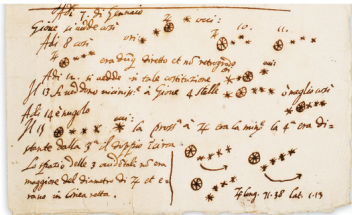 Adi 7. di Gennaio
Gioue si uedde così
Adi 8 così
era dunque diretto et non retrogrado
Adi 12. si uedde in tale costituzione
Il 13. si ueddono vicinissime à Gioue 4 stelle ò meglio così
Adi 14 è nugolo
Il 15 la prossima à ♃ era la minore la 4ª era di-
stante dalla 3ª il doppio incirca
Lo spazio delle 3 occidentali non era
maggiore del diametro di ♃ et e-
rano in linea retta.
♃ long. 71.38 Lat. 1.13